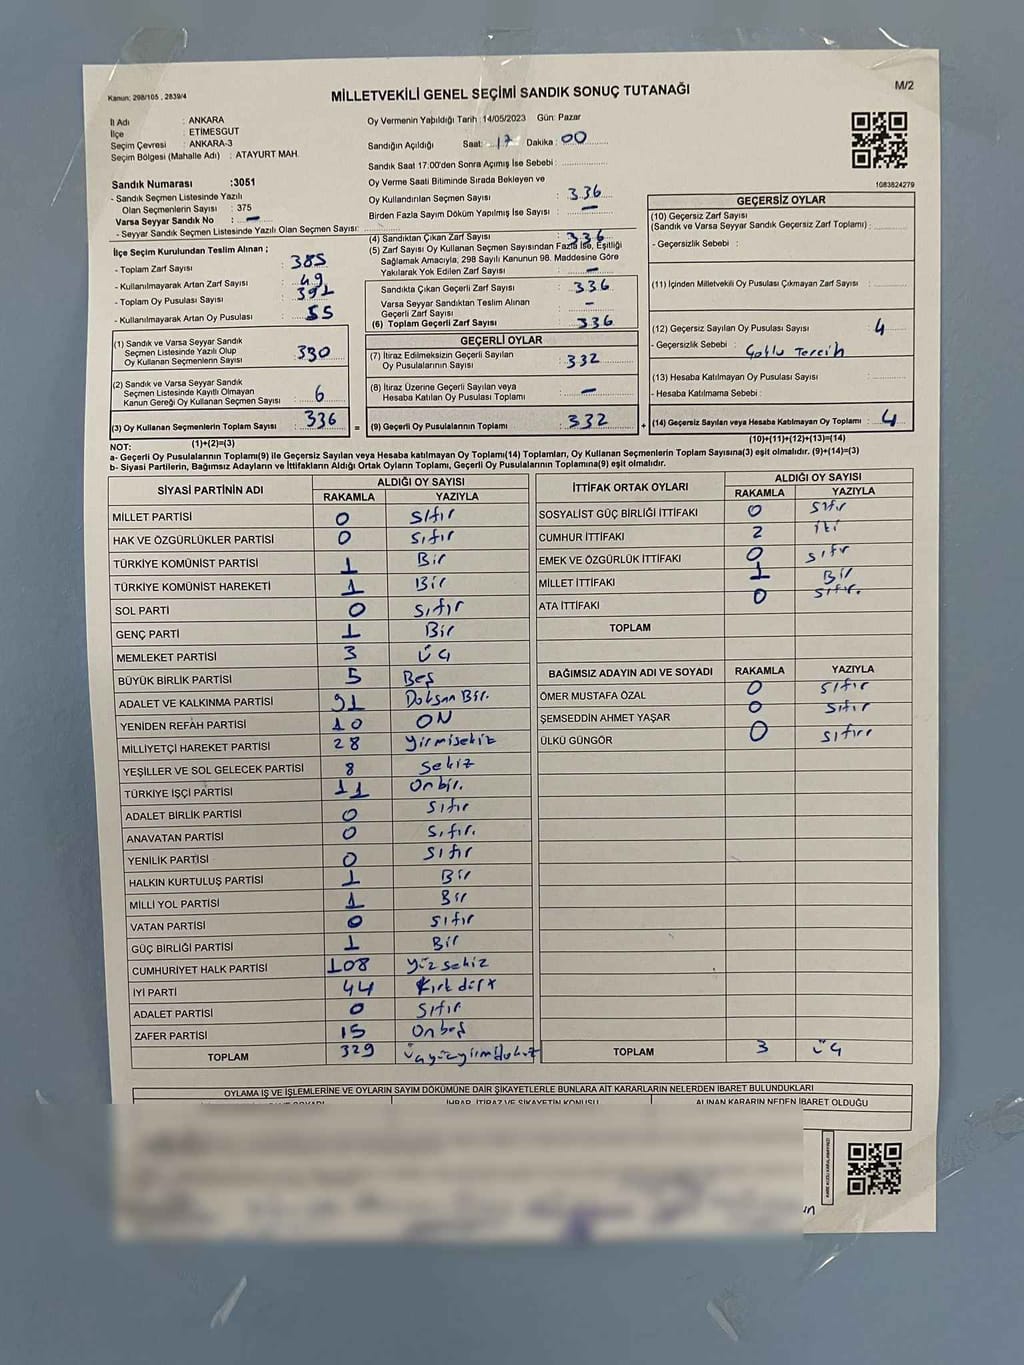 Kanun: 298/105 , 2839/4
MİLLETVEKİLİ GENEL SEÇİMİ SANDIK SONUÇ TUTANAĞI
M/2
İl Adı : ANKARA
İlçe : ETİMESGUT
Seçim Çevresi : ANKARA-3
Seçim Bölgesi (Mahalle Adı) : ATAYURT MAH.
Oy Vermenin Yapıldığı Tarih :14/05/2023 Gün: Pazar
Sandığın Açıldığı Saat: 17 Dakika : 00
Sandık Saat 17:00'den Sonra Açımış İse Sebebi :
1083824279
Sandık Numarası :3051
- Sandık Seçmen Listesinde Yazılı
Olan Seçmenlerin Sayısı : 375
Varsa Seyyar Sandık No : -
- Seyyar Sandık Seçmen Listesinde Yazılı Olan Seçmen Sayısı:
Oy Verme Saati Bitiminde Sırada Bekleyen ve
Oy Kullandırılan Seçmen Sayısı : 336
Birden Fazla Sayım Döküm Yapılmış İse Sayısı : -
İlçe Seçim Kurulundan Teslim Alınan ;
- Toplam Zarf Sayısı : 385
- Kullanılmayarak Artan Zarf Sayısı : 49
- Toplam Oy Pusulası Sayısı : 391
- Kullanılmayarak Artan Oy Pusulası : 55
(4) Sandıktan Çıkan Zarf Sayısı : 336
(5) Zarf Sayısı Oy Kullanan Seçmen Sayısından Fazla İse, Eşitliği
Sağlamak Amacıyla, 298 Sayılı Kanunun 98. Maddesine Göre
Yakılarak Yok Edilen Zarf Sayısı : -
Sandıkta Çıkan Geçerli Zarf Sayısı : 336
Varsa Seyyar Sandıktan Teslim Alınan
Geçerli Zarf Sayısı : -
(6) Toplam Geçerli Zarf Sayısı : 336
(1) Sandık ve Varsa Seyyar Sandık
Seçmen Listesinde Yazılı Olup
Oy Kullanan Seçmenlerin Sayısı : 330
(2) Sandık ve Varsa Seyyar Sandık
Seçmen Listesinde Kayıtlı Olmayan
Kanun Gereği Oy Kullanan Seçmen Sayısı : 6
(3) Oy Kullanan Seçmenlerin Toplam Sayısı : 336
(1)+(2)=(3)
GEÇERLİ OYLAR
(7) İtiraz Edilmeksizin Geçerli Sayılan
Oy Pusulalarının Sayısı : 332
(8) İtiraz Üzerine Geçerli Sayılan veya
Hesaba Katılan Oy Pusulası Toplamı : -
= (9) Geçerli Oy Pusulalarının Toplamı : 332 +
GEÇERSİZ OYLAR
(10) Geçersiz Zarf Sayısı
(Sandık ve Varsa Seyyar Sandık Geçersiz Zarf Toplamı) :
- Geçersizlik Sebebi :
(11) İçinden Milletvekili Oy Pusulası Çıkmayan Zarf Sayısı :
(12) Geçersiz Sayılan Oy Pusulası Sayısı : 4
- Geçersizlik Sebebi : Çoklu Tercih
(13) Hesaba Katılmayan Oy Pusulası Sayısı :
- Hesaba Katılmama Sebebi :
(14) Geçersiz Sayılan veya Hesaba Katılmayan Oy Toplamı : 4
(10)+(11)+(12)+(13)=(14)
NOT:
a- Geçerli Oy Pusulasının Toplamı(9) ile Geçersiz Sayılan veya Hesaba katılmayan Oy Toplamı(14) Toplamları, Oy Kullanan Seçmenlerin Toplam Sayısına(3) eşit olmalıdır. (9)+(14)=(3)
b- Siyasi Partilerin, Bağımsız Adayların ve İttifakların Aldığı Ortak Oyların Toplamı, Geçerli Oy Pusulasının Toplamına(9) eşit olmalıdır.
SİYASİ PARTİNİN ADI ALDIĞI OY SAYISI
RAKAMLA YAZIYLA
MİLLET PARTİSİ 0 Sıfır
HAK VE ÖZGÜRLÜKLER PARTİSİ 0 Sıfır
TÜRKİYE KOMÜNİST PARTİSİ 1 Bir
TÜRKİYE KOMÜNİST HAREKETİ 1 Bir
SOL PARTİ 0 Sıfır
GENÇ PARTİ 1 Bir
MEMLEKET PARTİSİ 3 Üç
BÜYÜK BİRLİK PARTİSİ 5 Beş
ADALET VE KALKINMA PARTİSİ 91 Doksan Bir.
YENİDEN REFAH PARTİSİ 10 ON
MİLLİYETÇİ HAREKET PARTİSİ 28 Yirmisekiz
YEŞİLLER VE SOL GELECEK PARTİSİ 8 Sekiz
TÜRKİYE İŞÇİ PARTİSİ 11 Onbir.
ADALET BİRLİK PARTİSİ 0 Sıfır
ANAVATAN PARTİSİ 0 Sıfır.
YENİLİK PARTİSİ 0 Sıfır
HALKIN KURTULUŞ PARTİSİ 1 Bir
MİLLİ YOL PARTİSİ 1 Bir
VATAN PARTİSİ 0 Sıfır
GÜÇ BİRLİĞİ PARTİSİ 1 Bir
CUMHURİYET HALK PARTİSİ 108 Yüzsekiz
İYİ PARTİ 44 Kırkdört
ADALET PARTİSİ 0 Sıfır
ZAFER PARTİSİ 15 Onbeş
TOPLAM 329 Üçyüzyirmidokuz
İTTİFAK ORTAK OYLARI ALDIĞI OY SAYISI
RAKAMLA YAZIYLA
SOSYALİST GÜÇ BİRLİĞİ İTTİFAKI 0 Sıfır
CUMHUR İTTİFAKI 2 İki
EMEK VE ÖZGÜRLÜK İTTİFAKI 0 Sıfır
MİLLET İTTİFAKI 1 Bir
ATA İTTİFAKI 0 Sıfır.
TOPLAM
BAĞIMSIZ ADAYIN ADI VE SOYADI RAKAMLA YAZIYLA
ÖMER MUSTAFA ÖZAL 0 Sıfır
ŞEMSEDDİN AHMET YAŞAR 0 Sıfır
ÜLKÜ GÜNGÖR 0 Sıfır
TOPLAM 3 Üç
OYLAMA İŞ VE İŞLEMLERİNE VE OYLARIN SAYIM DÖKÜMÜNE DAİR ŞİKAYETLERLE BUNLARA AİT KARARLARIN NELERDEN İBARET BULUNDUKLARI
İHBAR, İTİRAZ VE ŞİKAYETİN KONUSU ALINAN KARARIN NEDEN İBARET OLDUĞU